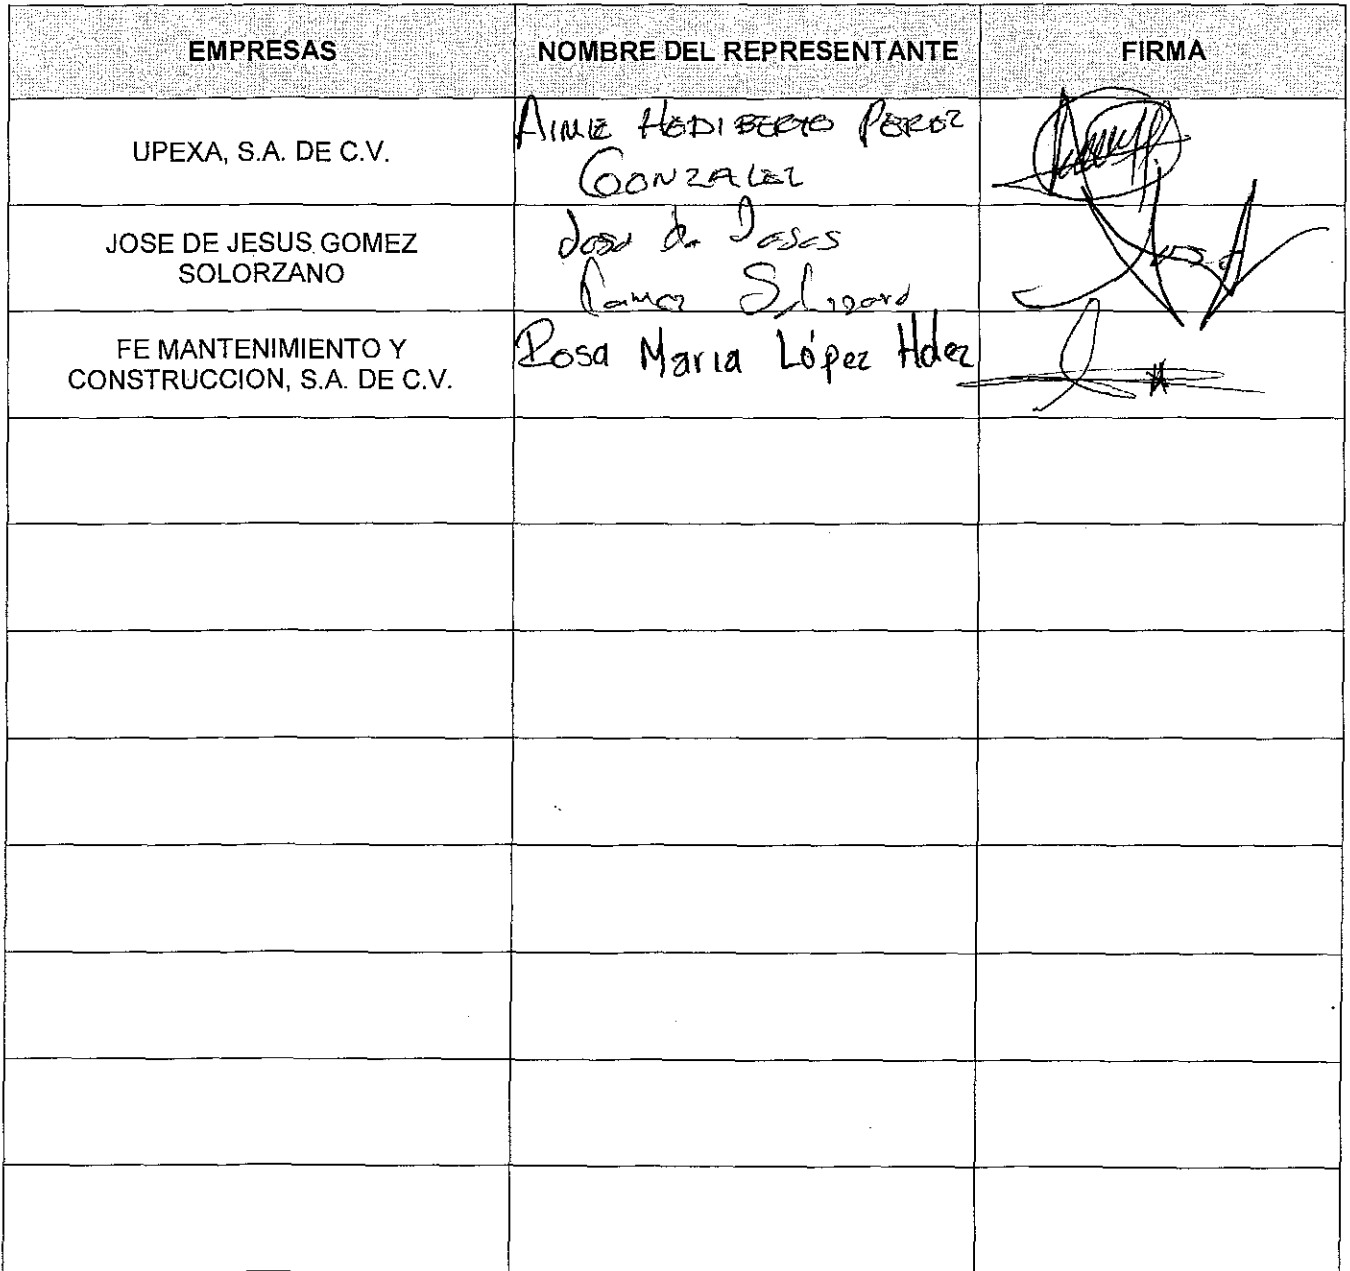 EMPRESAS
NOMBRE DEL REPRESENTANTE
FIRMA
UPEXA, S.A. DE C.V.
AIME HEDIBERTO PEREZ
GONZALEZ
JOSE DE JESUS GOMEZ
SOLORZANO
Jose de Jesus
FE MANTENIMIENTO Y
CONSTRUCCION, S.A. DE C.V.
Rosa Maria López Hdez